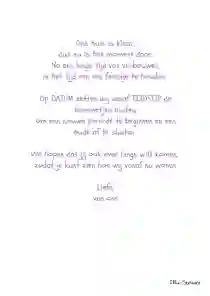 Ons huis is klaar,
dus nu is het moment daar.
Na een lange tijd van verbouwen,
is het tijd om een feestje te houden.
Op DATUM zetten wij vanaf TIJDSTIP de
deuren
om een nieuwe periode te beginnen en een
oude af te sluiten.
We hopen dat jij ook even langs wilt komen,
zodat je kunt zien hoe wij vanaf nu wonen.
Liefs,
van ons